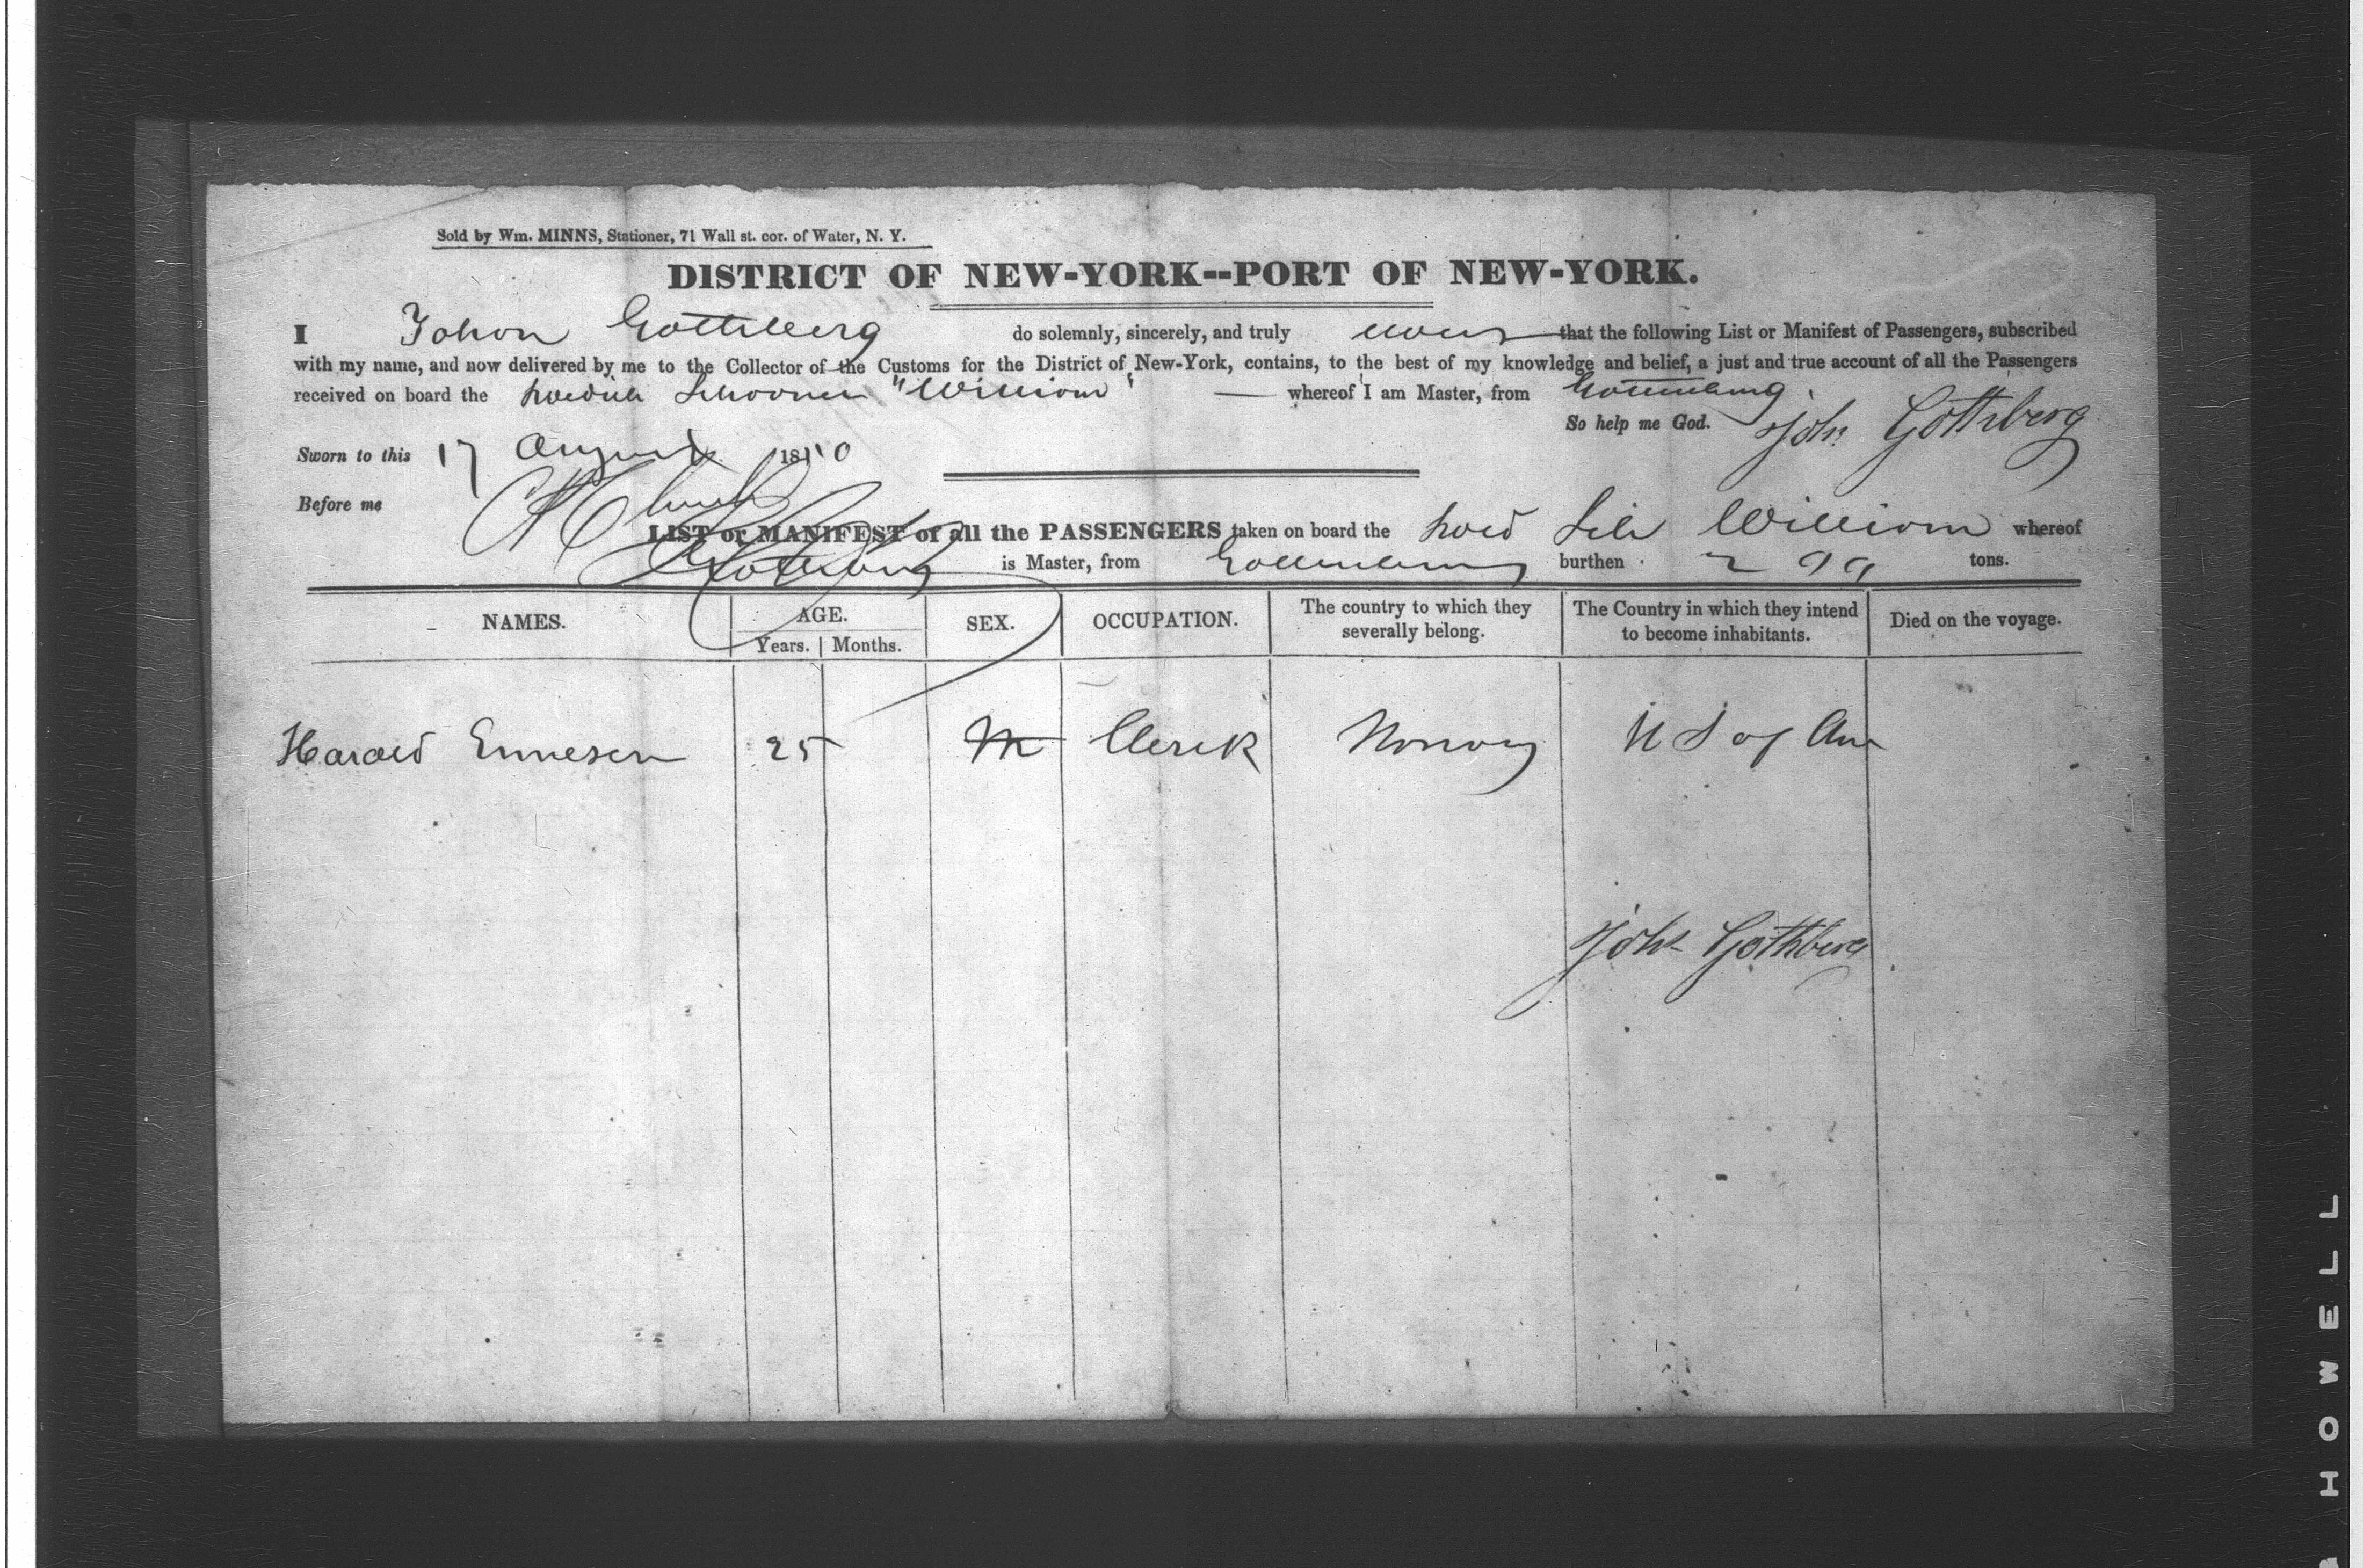 Sold by Wm. MINNS, Stationer, 71 Wall st. cor. of Water, N. Y.
DISTRICT OF NEW-YORK--PORT OF NEW-YORK.
I Johan Gothberg do solemnly, sincerely, and truly that the following List or Manifest of Passengers, subscribed
with my name, and now delivered by me to the Collector of the Customs for the District of New-York, contains, to the best of my knowledge and belief, a just and true account of all the Passengers
received on board the Swedish Schooner "William" — whereof I am Master, from Gottenburg.
So help me God. Joh. Gothberg
Sworn to this 17 August 1850
Before me
LIST or MANIFEST of all the PASSENGERS taken on board the Swed Sch William whereof
Gothberg is Master, from Gottenburg burthen 299 tons.
NAMES. AGE. SEX. OCCUPATION. The country to which they severally belong. The Country in which they intend to become inhabitants. Died on the voyage.
Years. Months.
Harald 25 M Clerk Norway U S of Am
Joh. Gothberg
HOWELL